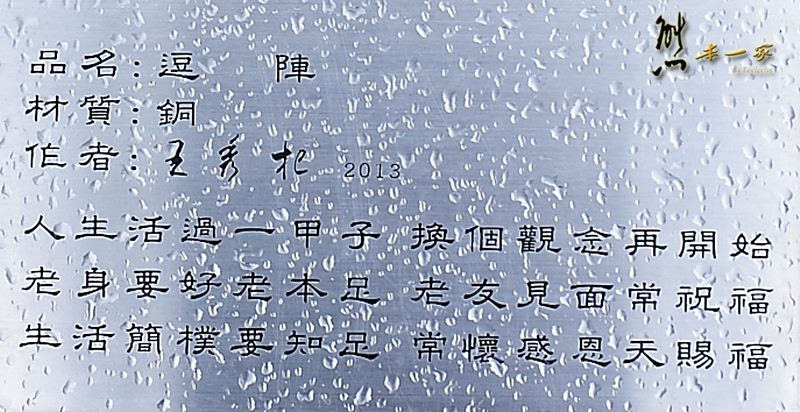 熊本一家
品名：逗 陣
材質：銅
作者：王秀杞 2013
人生活過一甲子 換個觀念再開始
老身要好老本足 老友見面常祝福
生活簡樸要知足 常懷感恩天賜福